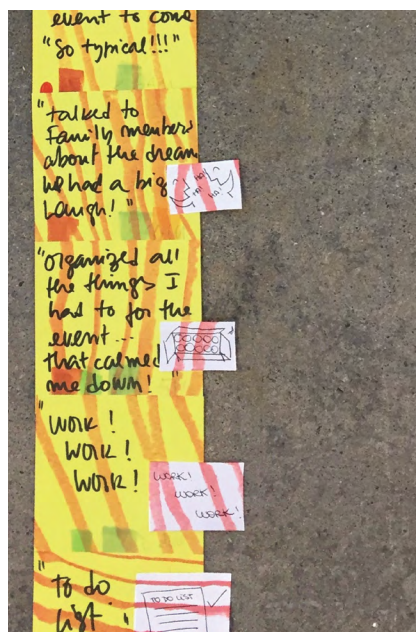 event to come
"So typical!!!"
"talked to
Family members
about the dream
we had a big
laugh!"
HA!
HA!
HA!
"organized all
the things I
had to for the
event...
that calmed
me down!"
"WORK!
WORK!
WORK!
WORK!
WORK!
WORK!
"to do
list"
TO DO LIST